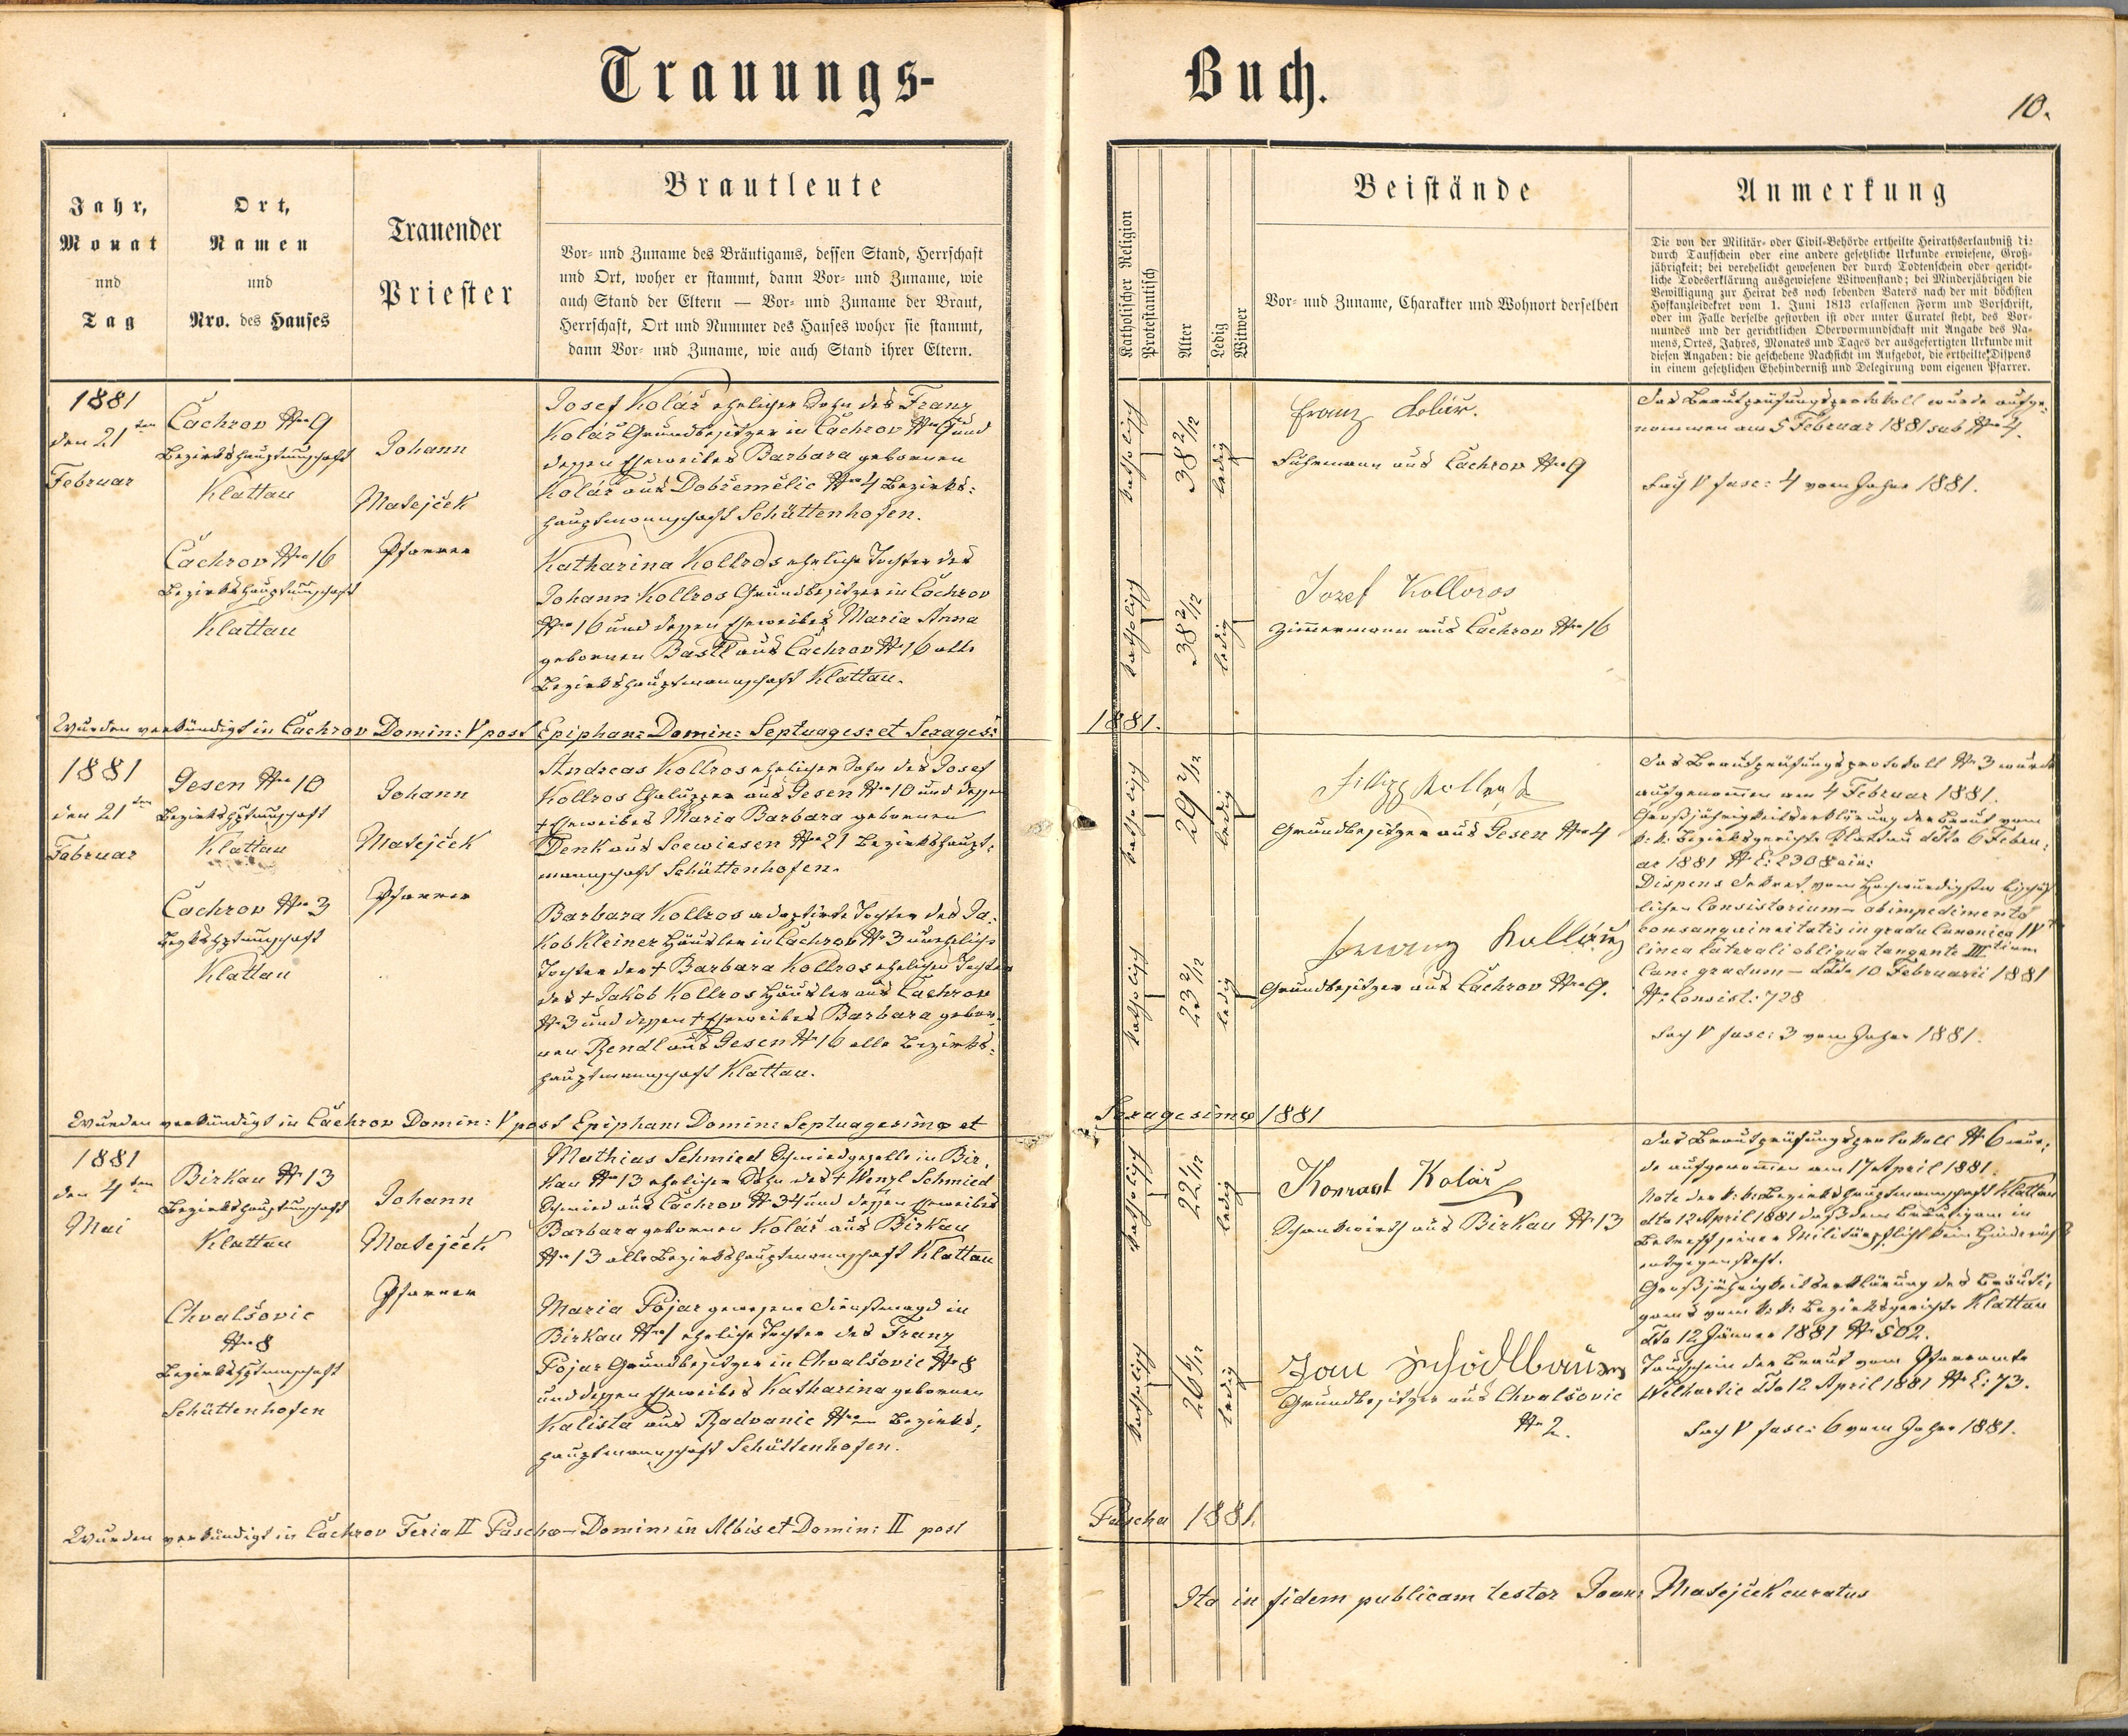 Trauungs-
Buch.
10.
Jahr,
Monat
und
Tag
Ort,
Namen
und
Nro. des Hauses
Trauender
Priester
Brautleute
Vor- und Zuname des Bräutigams, dessen Stand, Herrschaft
und Ort, woher er stammt, dann Vor- und Zuname, wie
auch Stand der Eltern — Vor- und Zuname der Braut,
Herrschaft, Ort und Nummer des Hauses woher sie stammt,
dann Vor- und Zuname, wie auch Stand ihrer Eltern.
Katholischer Religion
Protestantisch
Alter
Ledig
Witwer
Beistände
Vor- und Zuname, Charakter und Wohnort derselben
Anmerkung
Die von der Militär- oder Civil-Behörde ertheilte Heirathserlaubniß di:
durch Taufschein oder eine andere gesetzliche Urkunde erwiesene, Groß-
jährigkeit; bei verehelicht gewesenen der durch Todtenschein oder gericht-
liche Todeserklärung ausgewiesene Witwenstand; bei Minderjährigen die
Bewilligung zur Heirat des noch lebenden Vaters nach der mit höchsten
Hofkanzleidekret vom 1. Juni 1813 erlassenen Form und Vorschrift,
oder im Falle derselbe gestorben ist oder unter Curatel steht, des Vor-
mundes und der gerichtlichen Obervormundschaft mit Angabe des Na-
mens, Ortes, Jahres, Monates und Tages der ausgefertigten Urkunde mit
diesen Angaben: die geschehene Nachsicht im Aufgebot, die ertheilte Dispens
in einem gesetzlichen Ehehinderniß und Delegirung vom eigenen Pfarrer.
1881
den 21ten
Februar
Čachrov Nro 9
Bezirkshauptmannschaft
Klattau
Čachrov Nro 16
Bezirkshauptmannschaft
Klattau
Johann
Matejček
Pfarrer
Josef Kolář ehelicher Sohn des Franz
Kolář Grundbesitzer in Čachrov Nro 9 und
dessen Eheweibes Barbara gebornen
Kolář aus Dobřemělic Nro 4 Bezirks:
hauptmannschaft Schüttenhofen.
Katharina Kollros eheliche Tochter des
Johann Kollros Grundbesitzer in Čachrov
Nro 16 und dessen Eheweibes Maria Anna
gebornen Bastl aus Čachrov N 16 alle
Bezirkshauptmannschaft Klattau.
katholisch
38 2/12
ledig
katholisch
38 2/12
ledig
Franz Kolár.
Fuhrmann aus Čachrov Nro 9
Jozef Kolloros
Zimmermann aus Čachrov Nro 16
Das Brautprüfungsprotokoll wurde aufge-
nommen am 5 Februar 1881 sub Nro 4.
Fach V fasc: 4 vom Jahre 1881.
Wurden verkündigt in Čachrov Domin: V post Epiphan: Domin: Septuages: et Sexages: 1881.
1881
den 21ten
Februar
Gesen Nro 10
Bezirkshptmnschaft
Klattau
Čachrov Nro 3
Bezkshptmnschaft
Klattau
Johann
Matejček
Pfarrer
Andreas Kollros ehelicher Sohn des Josef
Kollros Chaluppner aus Gesen Nro 10 und dessen
+ Eheweibes Maria Barbara gebornen
Denk aus Seewiesen Nro 21 Bezirkshaupt:
mannschaft Schüttenhofen.
Barbara Kollros adoptirte Tochter des Ja:
kob Kleiner Häusler in Čachrov N 3 uneheliche
Tochter der + Barbara Kollros ehelichen Tochter
des + Jakob Kollros Häusler aus Čachrov
N 3 und dessen + Eheweibes Barbara gebor:
nen Rendl aus Gesen N 16 alle Bezirks:
hauptmannschaft Klattau.
katholisch
29 2/12
ledig
katholisch
23 2/12
ledig
Grundbesitzer aus Gesen Nro 4
Grundbesitzer aus Čachrov Nro 9.
Das Brautprüfungsprotokoll N 3 wurde
aufgenommen am 4 Februar 1881.
Großjährigkeitserklärung der Braut vom
k: k: Bezirksgerichte Klattau ddto 6 Febru:
ar 1881 N E: 2308 civ:
Dispens Dekret vom Hochwürdigsten bischöf
lichen Consistorium – ab impedimento
consanguinitatis in gradu Canonico IVto
linea laterali obliqua tangente IIItium
Canc gradum – ddto 10 Februarii 1881
N: Consist: 728
Fach V fasc: 3 vom Jahre 1881.
Wurden verkündigt in Čachrov Domin: V post Epiphan: Domin: Septuagesimæ et Sexagesimæ 1881
1881
den 4ten
Mai
Birkau N 13
Bezirkshauptmannschaft
Klattau
Chvalšovic
Nro 8
Bezirkshptmnschaft
Schüttenhofen
Johann
Matejček
Pfarrer
Mathias Schmied Schmiedgeselle in Bir,
kau Nro 13 ehelicher Sohn des + Wenzl Schmied
Schmied aus Čachrov N 34 und dessen Eheweibes
Barbara gebornen Kolář aus Birkau
Nro 13 alle Bezirkshauptmannschaft Klattau
Maria Pojar gewesene Dienstmagd in
Birkau Nro 1 eheliche Tochter des Franz
Pojar Grundbesitzer in Chvalšovic Nro 8
und dessen Eheweibes Katharina gebornen
Kalista aus Radvanic Nro – Bezirks:
hauptmannschaft Schüttenhofen.
katholisch
22 1/12
ledig
katholisch
26 6/12
ledig
Konrad Kolář
Schankwirth aus Birkau N 13
Jan
Grundbesitzer aus Chvalšovic
N 2.
Das Brautprüfungsprotokoll N 6 wur:
de aufgenommen am 17 April 1881.
Note der k: k: Bezirkshauptmannschaft Klattau
dto 12 April 1881 daß dem Bräutigam in
Betreff seiner Militärpflicht kein Hinderniß
entgegensteht.
Großjährigkeitserklärung des Bräuti,
gams vom k: k: Bezirksgerichte Klattau
ddo 12 Jänner 1881 N 502.
Taufschein der Braut vom Pfarramte
Welhartic ddo 12 April 1881 N E: 73.
Fach V fasc: 6 vom Jahre 1881.
Wurden verkündigt in Čachrov Feria II Paschæ – Domin: in Albis et Domin: II post Pascha 1881.
Ita in fidem publicam testor Joan: Matejček curatus